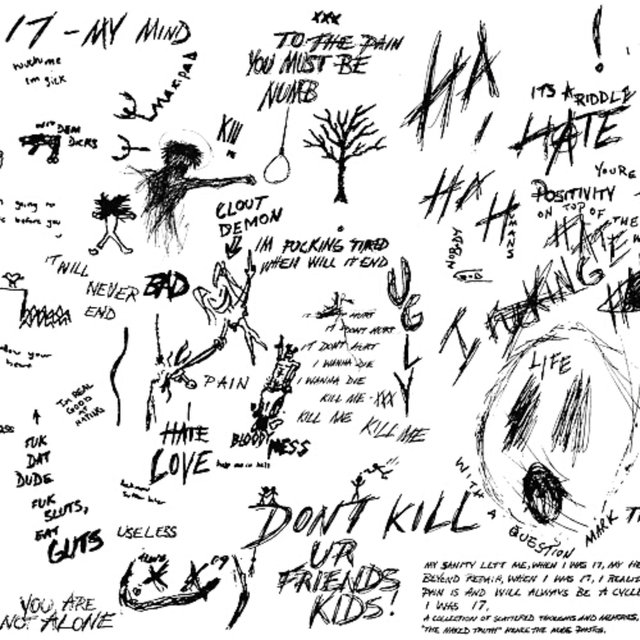 17 - MY MIND
XXX
TO THE PAIN
YOU MUST BE
NUMB
HA
HA
HA
!
ITS A RIDDLE
HATE
YOURE
POSITIVITY
ON TOP OF
HATE
THE
HUMANS
NOBODY
GOD
I FUCKING
im sick
MAXIPAD
DEM
DICKS
KILL
CLOUT
DEMON
IM FUCKING TIRED
WHEN WILL IT END
going
before you
IT WILL
NEVER
END
BAD
UGLY
IT DONT HURT
IT DONT HURT
IT DONT HURT
I WANNA DIE
I WANNA DIE
KILL ME - XXX
KILL ME
KILL ME
PAIN
your
IM REAL
GOOD AT
HATING
HATE
LOVE
BLOODY
MESS
LIFE
WITH A QUESTION MARK
FUK
DAT
DUDE
FUK
SLUTS,
EAT
GUTS
USELESS
YOU ARE
NOT ALONE
DONT KILL
UR
FRIENDS
KIDS!
MY SANITY LEFT ME, WHEN I WAS 17, MY HE
BEYOND REPAIR, WHEN I WAS 17, I REALIZ
PAIN IS AND WILL ALWAYS BE A CYCLE
I WAS 17.
A COLLECTION OF SCATTERED THOUGHTS AND MEMORIES,
"THE NAKED TRUTH" HENCE THE NUDE PHOTOS.